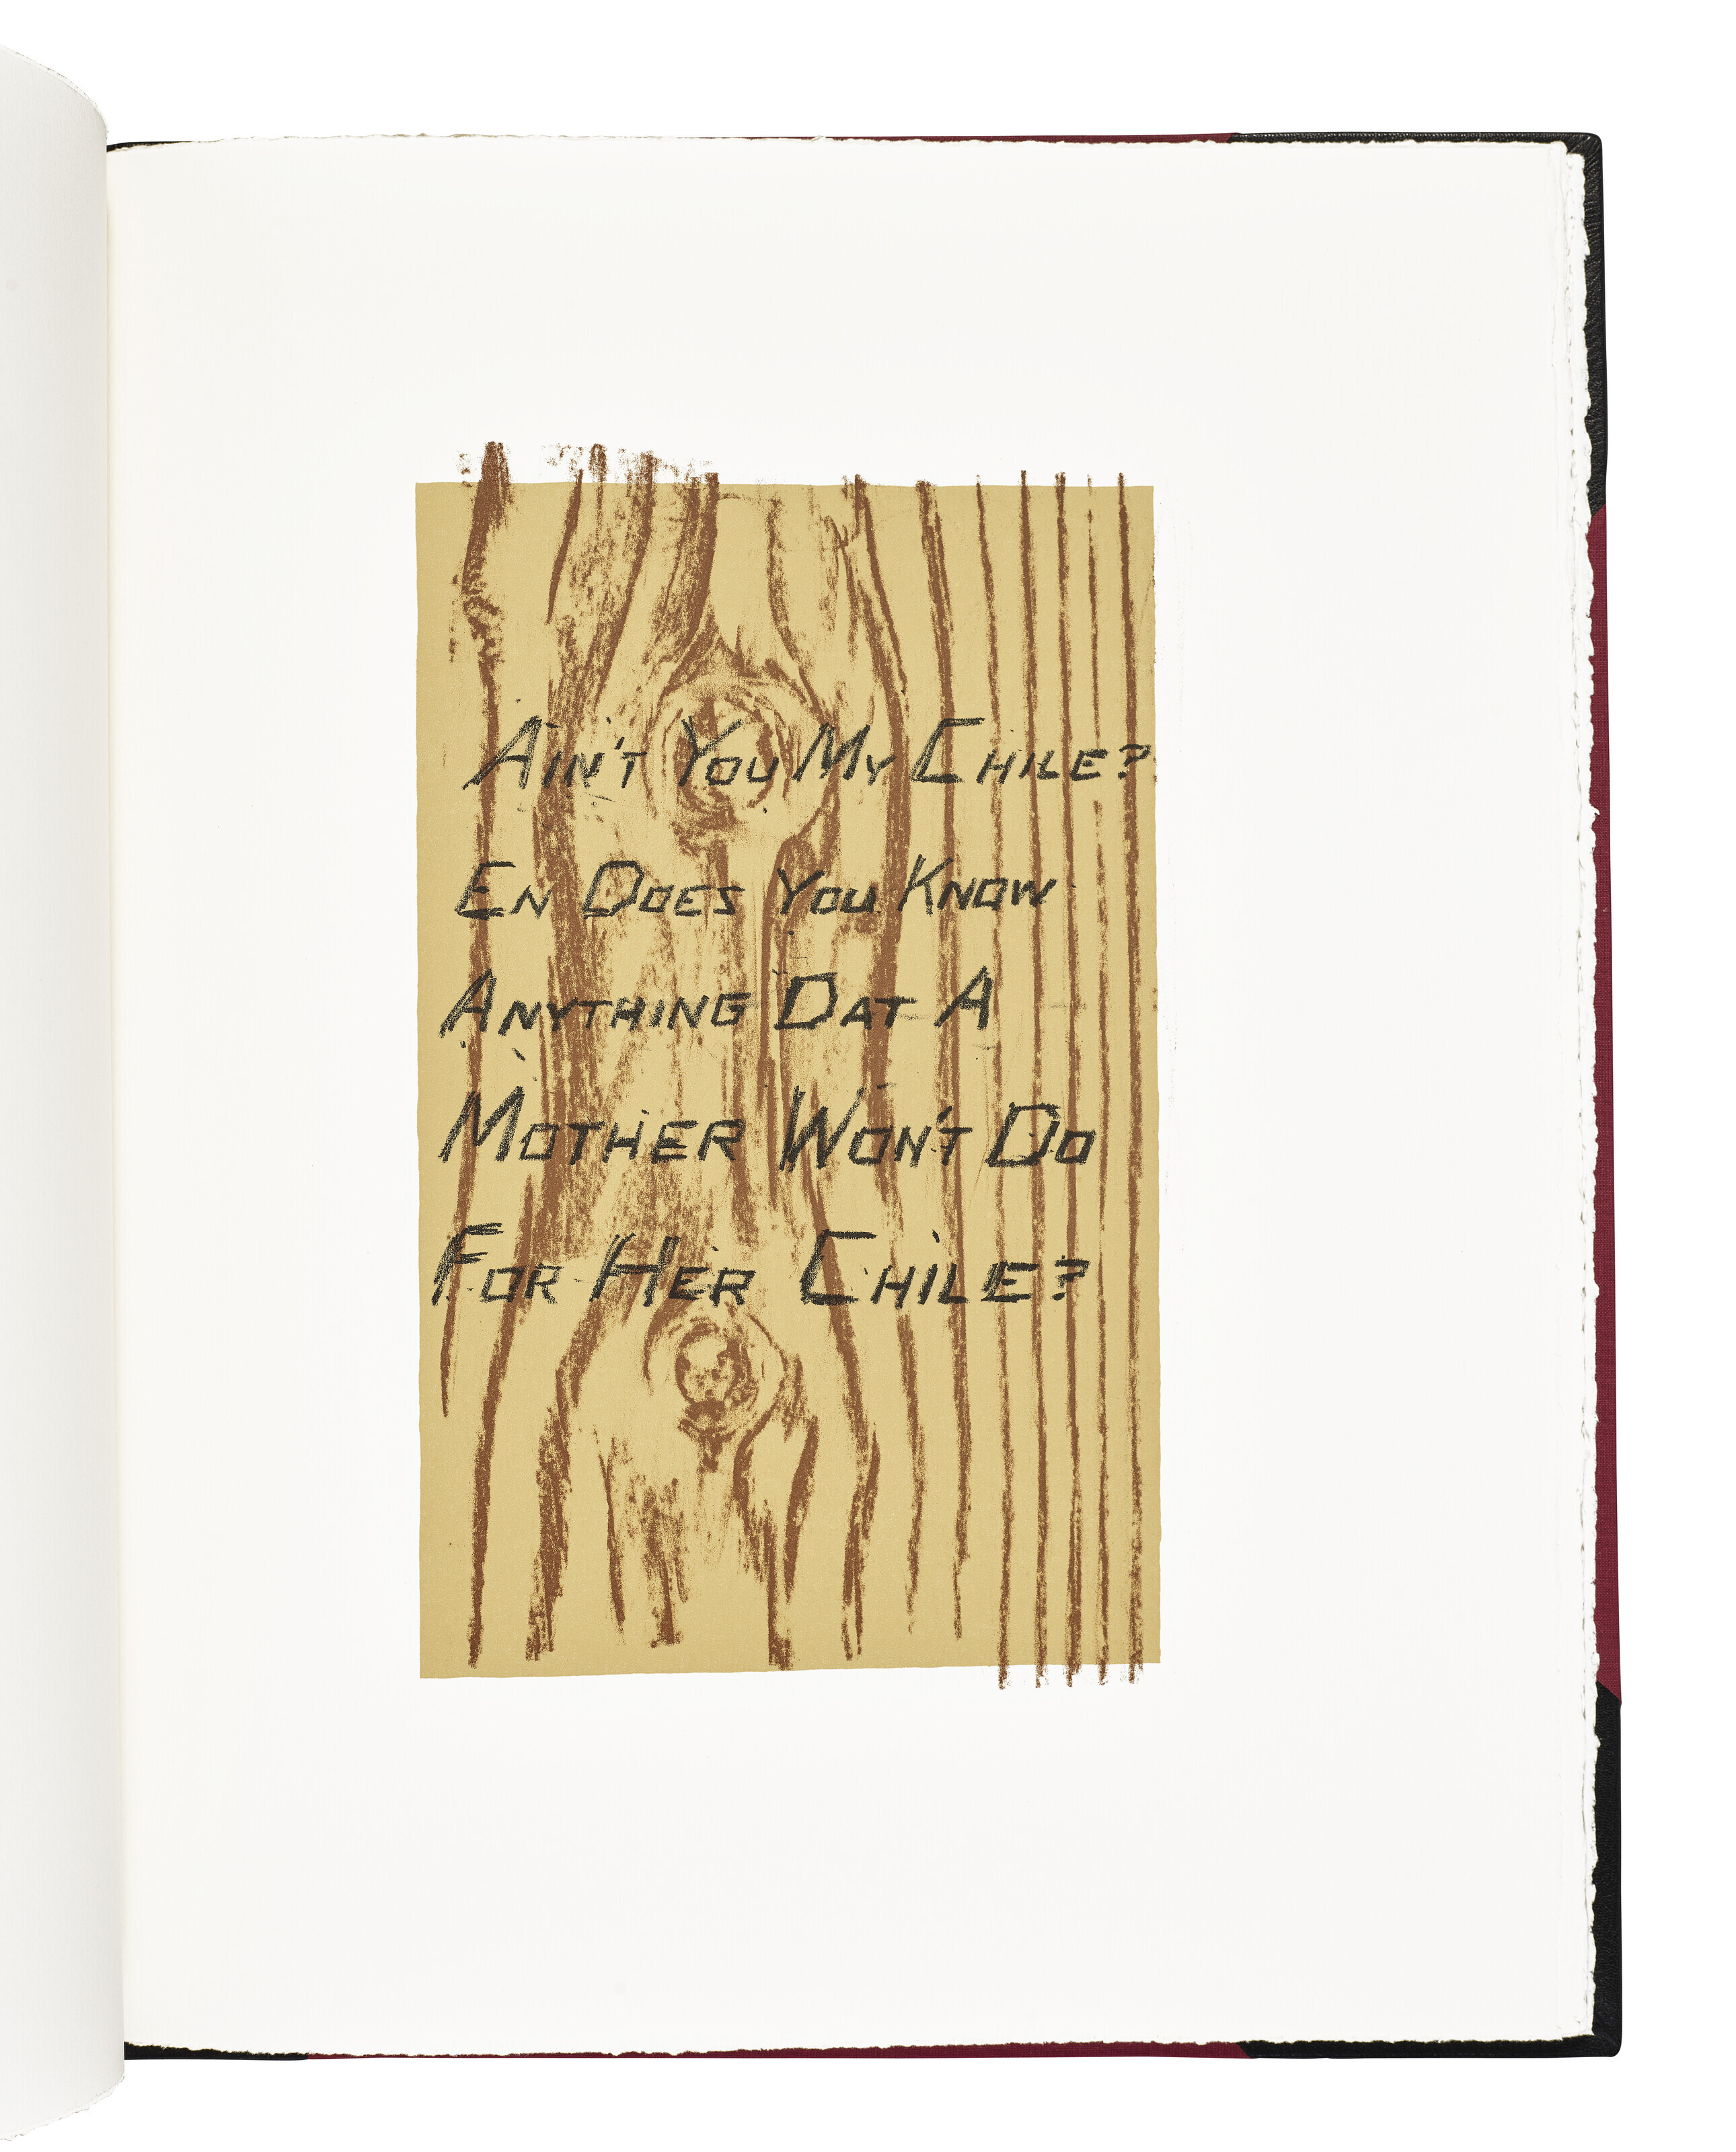 AIN'T YOU MY CHILE?
EN DOES YOU KNOW
ANYTHING DAT A
MOTHER WON'T DO
FOR HER CHILE?